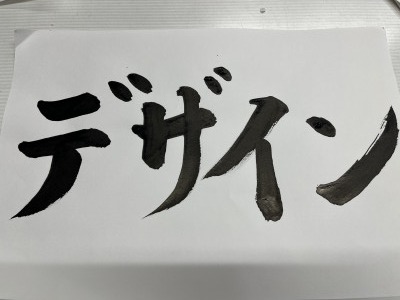 デザイン